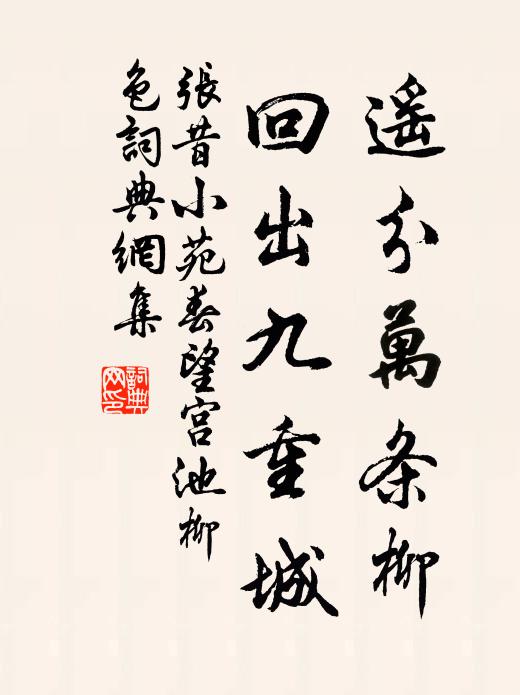 遥分萬条柳
回出九重城
張昔小苑春望宮池柳
色詞典網集
詞典網印